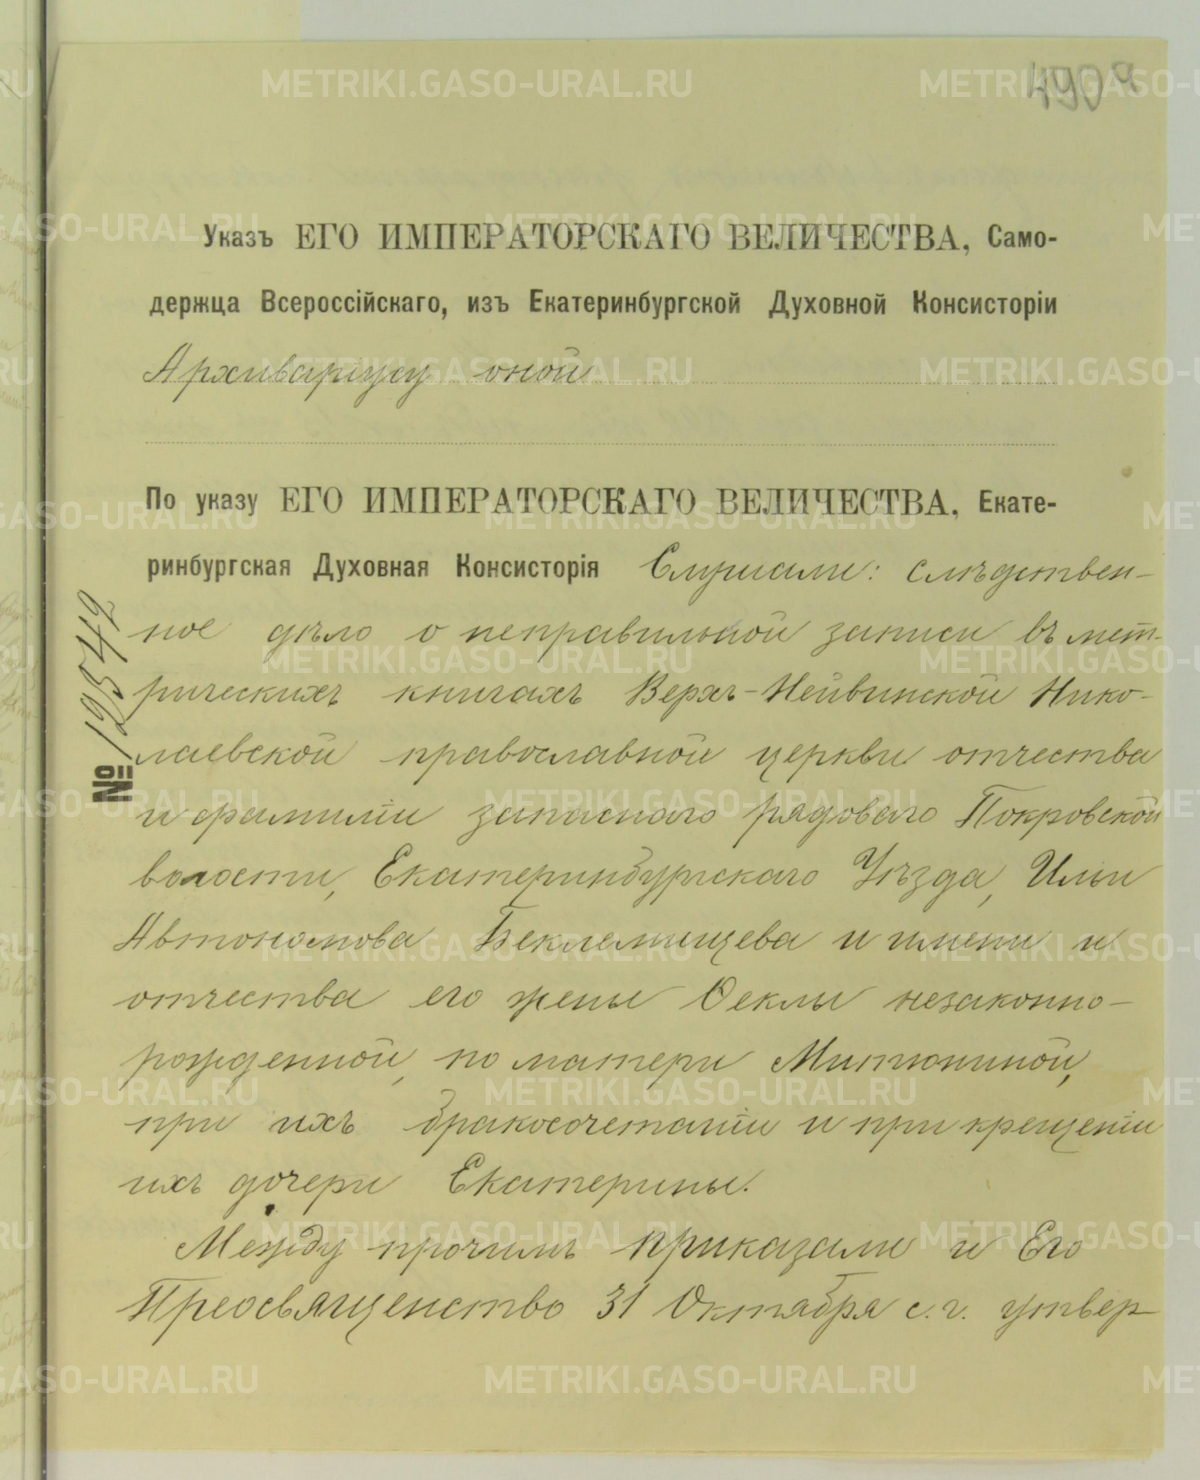 490 9
Указъ ЕГО ИМПЕРАТОРСКАГО ВЕЛИЧЕСТВА, Само-
держца Всероссійскаго, изъ Екатеринбургской Духовной Консисторіи
Архиваріусу оной
По указу ЕГО ИМПЕРАТОРСКАГО ВЕЛИЧЕСТВА, Екате-
ринбургская Духовная Консисторія Слушали: слѣдствен-
ное дѣло о неправильной записи въ мет-
рическихъ книгахъ Верхъ-Нейвинской Нико-
лаевской православной церкви отчества
и фамиліи запаснаго рядоваго Покровской
волости, Екатеринбургскаго Уѣзда, Ильи
Автономова Беклемищева и имени и
отчества его жены Ѳеклы незаконно-
рожденной, по матери Митюниной,
при ихъ бракосочетаніи и при крещеніи
ихъ дочери Екатерины.
Между прочимъ приказали и Его
Преосвященство 31 Октября с.г. утвер-
№ 12542
METRIKI.GASO-URAL.RU